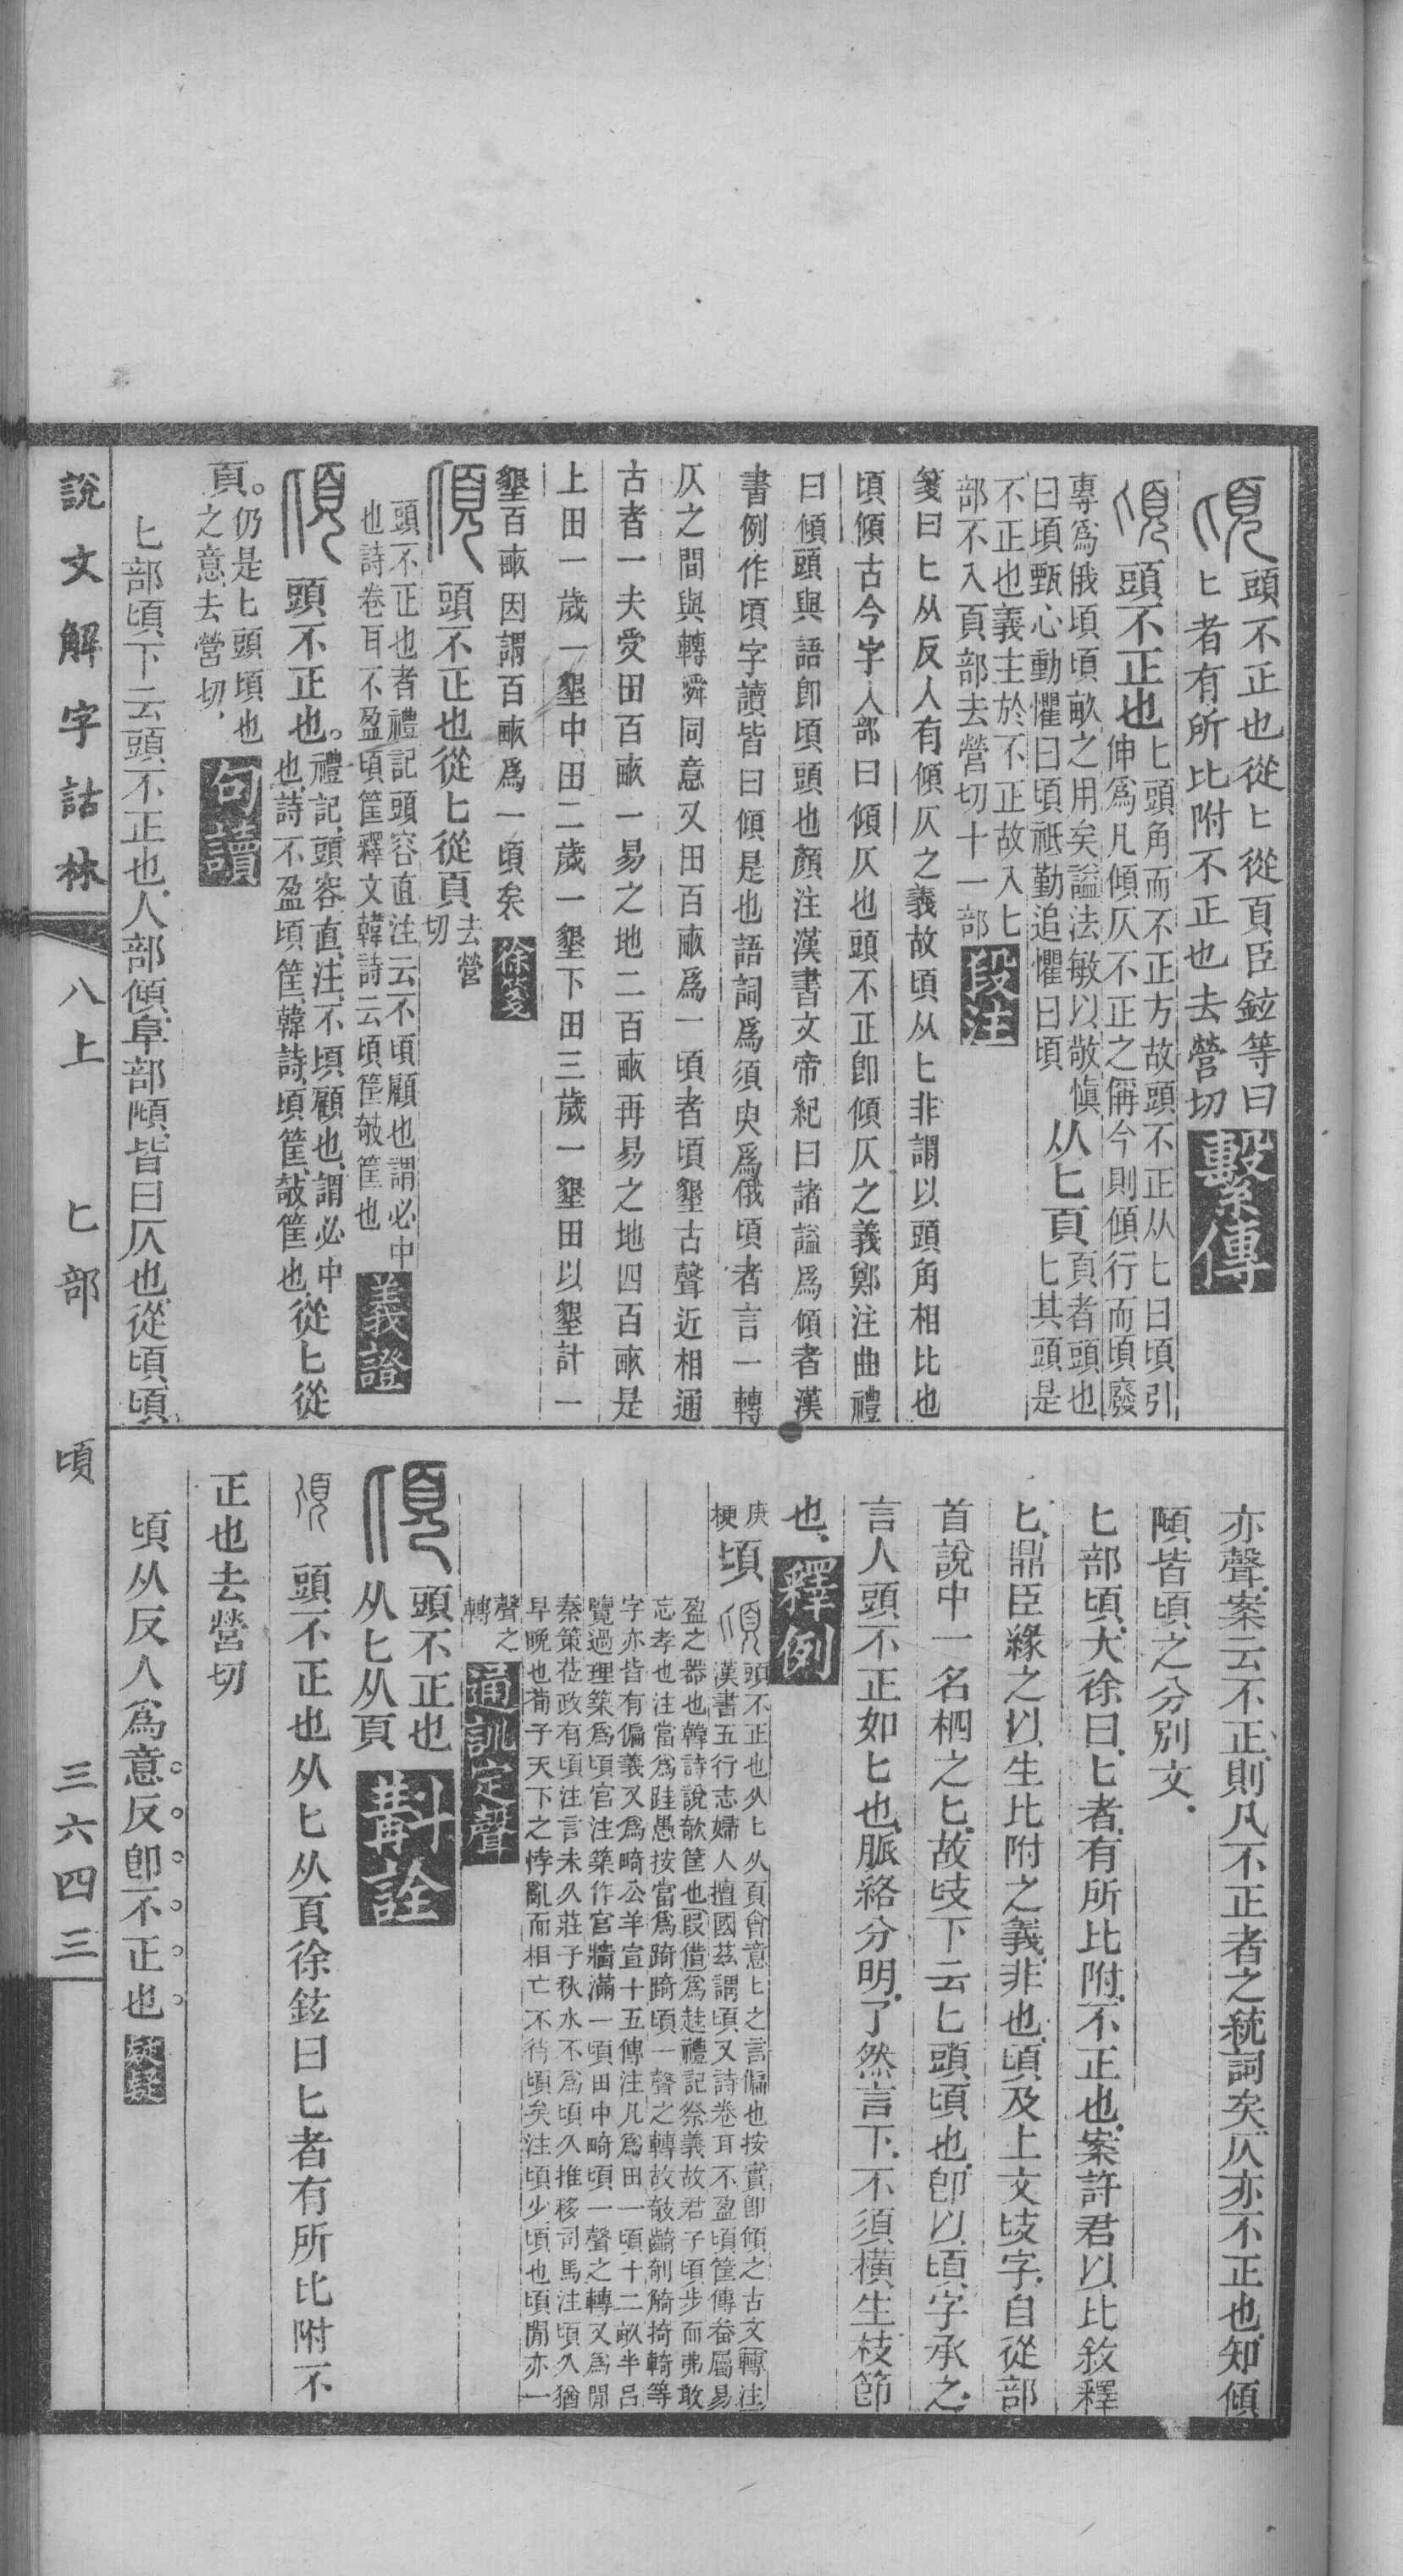 頭不正也從匕從頁臣鉉等曰
匕者有所比附不正也去營切
繫傳
頭不正也
匕頭角而不正方故頭不正从匕曰頃引
伸爲凡傾仄不正之偁今則傾行而頃廢
專爲俄頃頃畝之用矣謚法敏以敬愼
曰頃甄心動懼曰頃祇勤追懼曰頃
从匕頁
頁者頭也
匕其頭是
不正也義主於不正故入匕
部不入頁部去營切十一部
段注
箋曰匕从反人有傾仄之義故頃从匕非謂以頭角相比也
頃傾古今字人部曰傾仄也頭不正卽傾仄之義鄭注曲禮
曰傾頭與語卽頃頭也顏注漢書文帝紀曰諸謚爲傾者漢
書例作頃字讀皆曰傾是也語詞爲須臾爲俄頃者言一轉
仄之間與轉瞬同意又田百畝爲一頃者頃墾古聲近相通
古者一夫受田百畝一易之地二百畝再易之地四百畝是
上田一歲一墾中田二歲一墾下田三歲一墾田以墾計一
墾百畝因謂百畝爲一頃矣
徐箋
頭不正也從匕從頁
去營
切
頭不正也者禮記頭容直注云不頃顧也謂必中
也詩卷耳不盈頃筐釋文韓詩云頃筐攲筐也
義證
頭不正也。
禮記頭容直注不頃顧也謂必中
也詩不盈頃筐韓詩頃筐攲筐也
從匕從
頁。
仍是匕頭頃也
之意去營切
句讀
匕部頃下云頭不正也人部傾𨸏部䫌皆曰仄也從頃頃
亦聲案云不正則凡不正者之統詞矣仄亦不正也知傾
䫌皆頃之分別文
匕部頃大徐曰匕者有所比附不正也案許君以比敘釋
匕鼎臣緣之以生比附之義非也頃及上文㞴字自從部
首說中一名柶之匕故㞴下云匕頭頃也卽以頃字承之
言人頭不正如匕也脈絡分明了然言下不須橫生枝節
也
釋例
庚
梗
頃
頭不正也从匕从頁會意匕之言偏也按實卽傾之古文轉注
漢書五行志婦人擅國玆謂頃又詩卷耳不盈頃筐傳畚屬易
盈之器也韓詩說攲筐也叚借爲𧻲禮記祭義故君子頃步而弗敢
忘孝也注當爲跬愚按當爲踦踦頃一聲之轉故攲齮剞觭掎輢等
字亦皆有偏義又爲畸公羊宣十五傳注凡爲田一頃十二畝半呂
覽過理築爲頃宮注築作宮牆滿一頃田中畸頃一聲之轉又爲閒
秦策莅政有頃注言未久莊子秋水不爲頃久推移司馬注頃久猶
早晚也荀子天下之悖亂而相亡不待頃矣注頃少頃也頃閒亦一
聲之
轉
通訓定聲
頭不正也
从匕从頁
斠詮
頭不正也从匕从頁徐鉉曰匕者有所比附不
正也去營切
頃从反人爲意反卽不正也
疑疑
說文解字詁林 八上 匕部 頃 三六四三